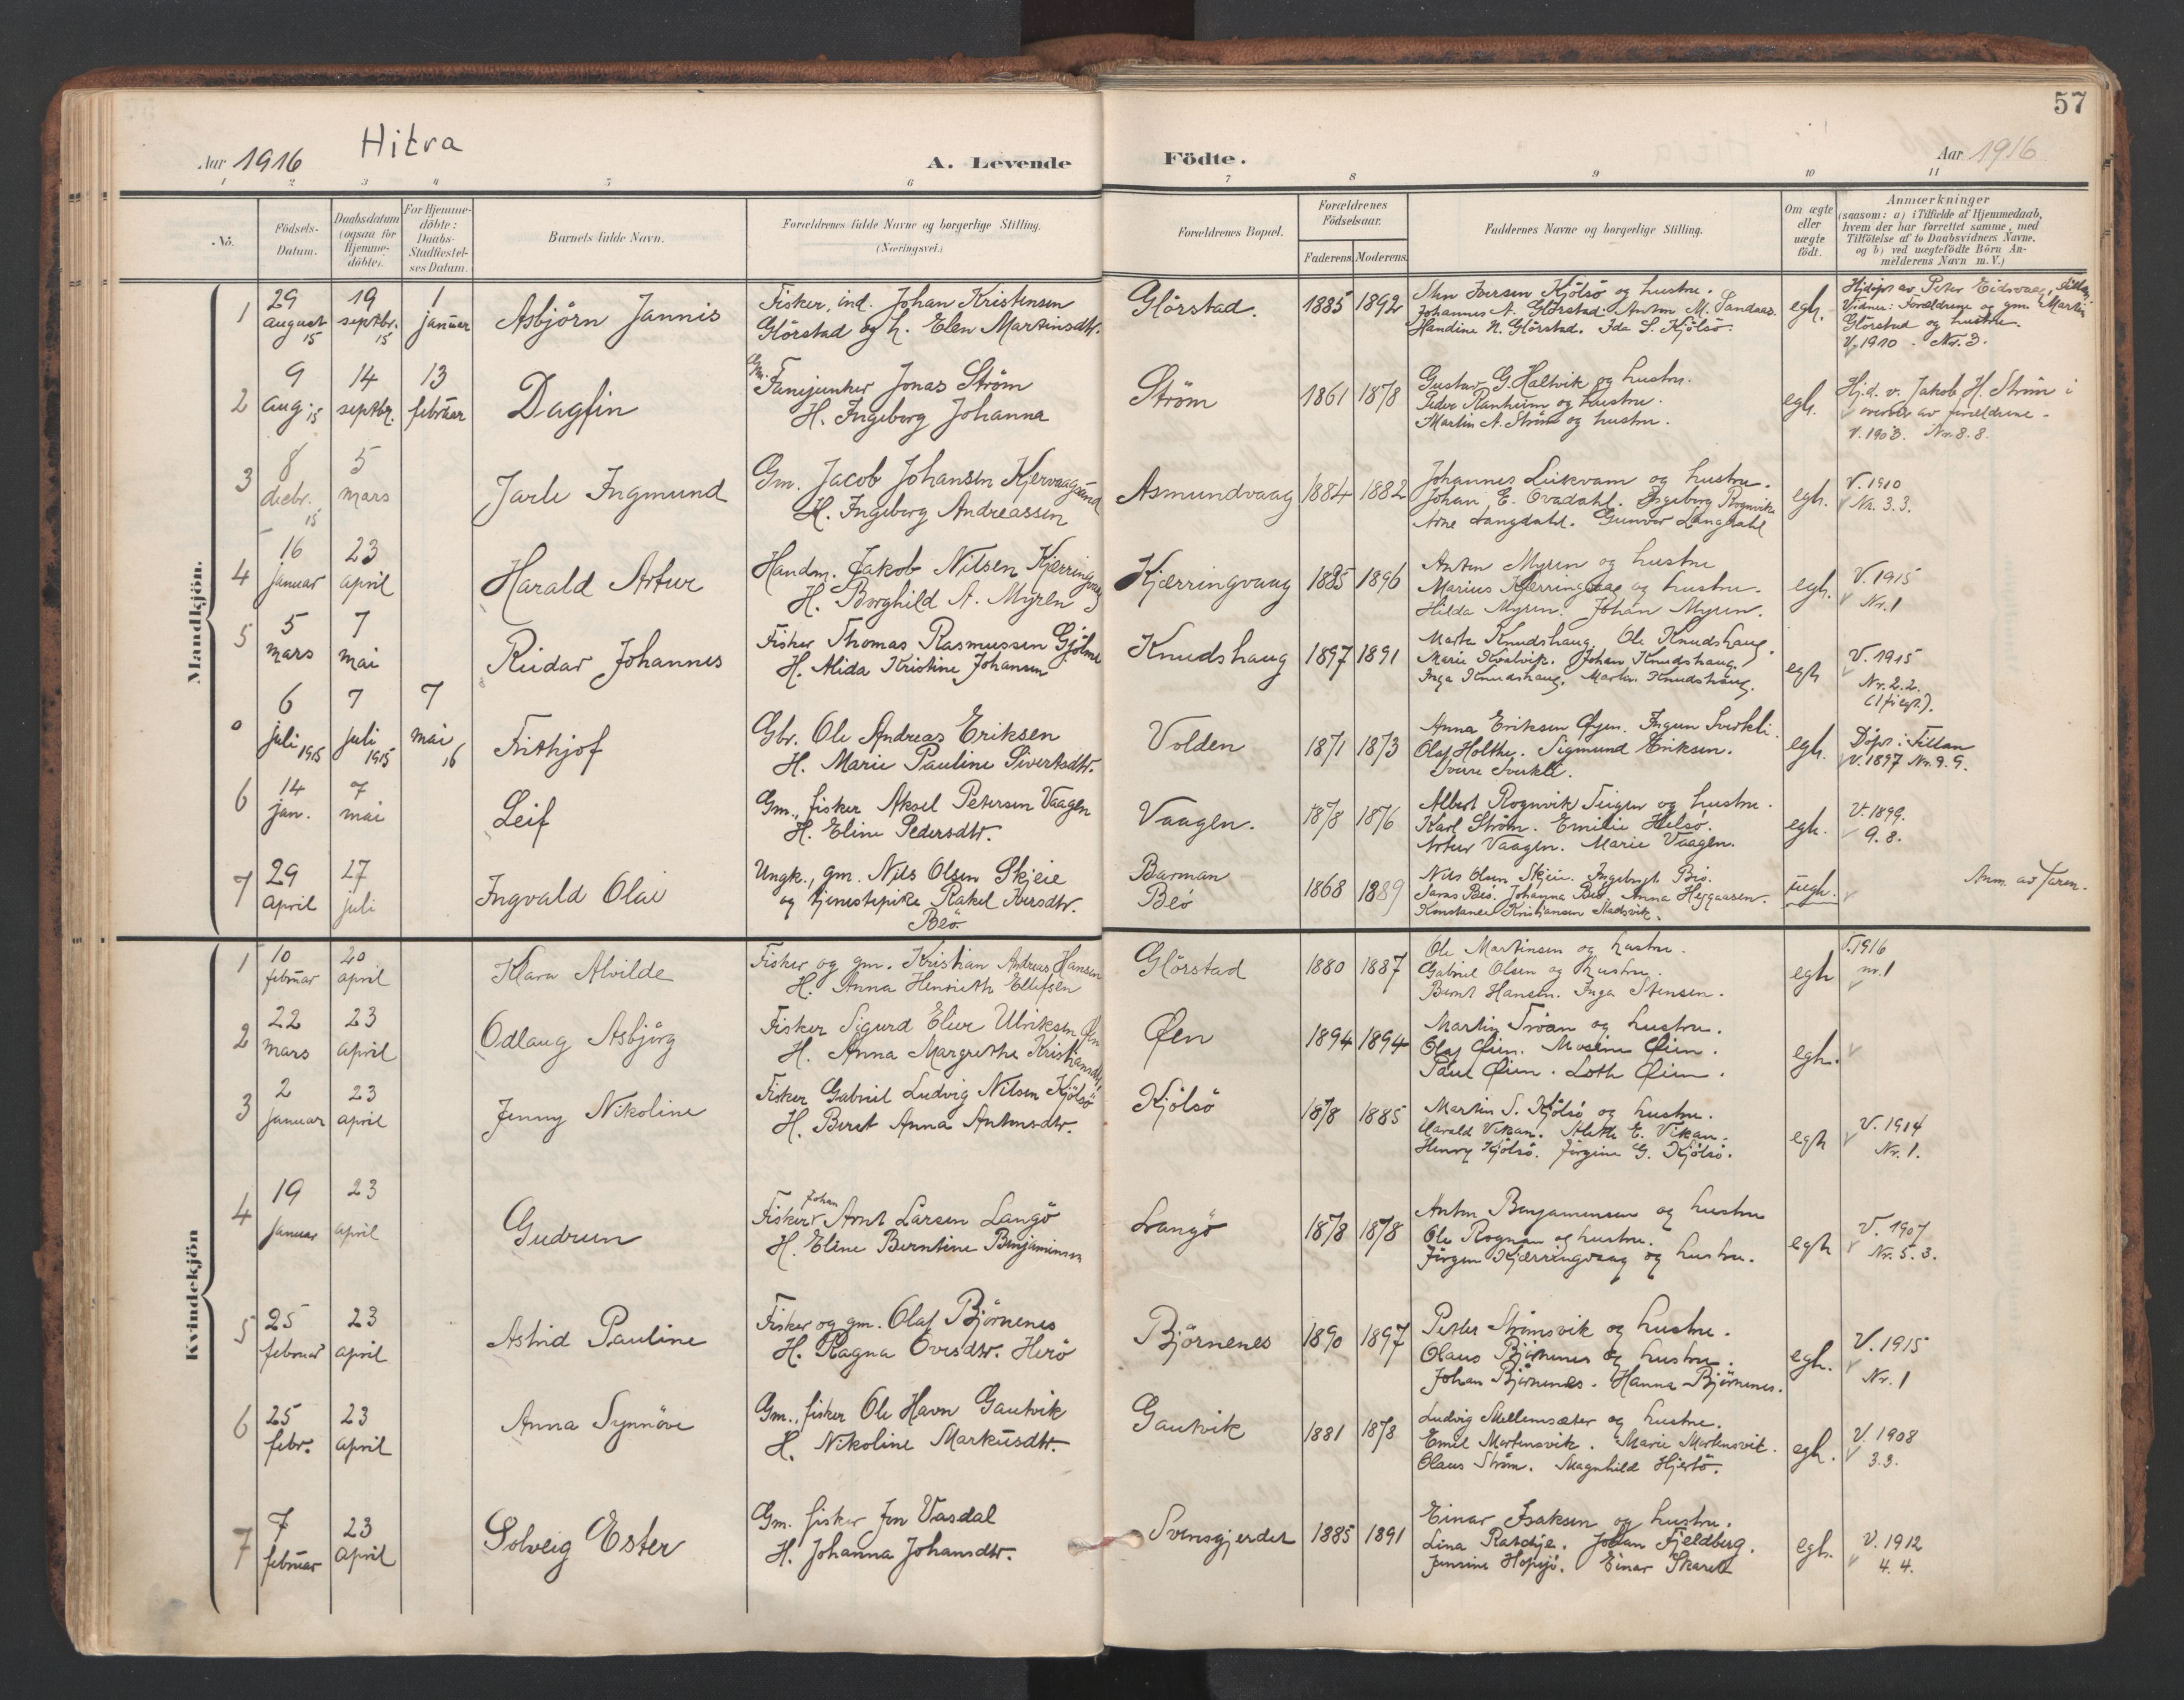 57
Aar 1916
Hitra
A. Levende
Födte.
Aar 1916
1 2 3 4 5 6 7 8 9 10 11
No.
Födsels-
Datum.
Daabsdatum
(ogsaa for
Hjemme-
döbte).
For Hjemme-
döbte:
Daabs-
Stadfæstel-
ses Datum.
Barnets fulde Navn.
Forældrenes fulde Navne og borgerlige Stilling.
(Næringsvei.)
Forældrenes Bopæl.
Forældrenes
Födselsaar.
Faderens Moderens
Faddernes Navne og borgerlige Stilling.
Om ægte
eller
uægte
födt.
Anmærkninger
(saasom: a) i Tilfælde af Hjemmedaab,
hvem der har forrettet samme, med
Tilföielse af to Daabsvidners Navne.
og b) ved uægtefödte Börn An-
melderens Navn m. V.)
Mandkjön.
1
29
august
15
19
septbr.
15
1
januar
Asbjörn Jannis
Fisker, ind. Johan Kristensen
Glörstad og h. Elen Martinsdtr.
Glörstad.
1885 1892
Sten Iversen Kjölsö og hustru.
Johannes A. Glörstad. Anton M. Sandaas.
Handine N. Glörstad. Ida S. Kjölsö.
egh.
Hjdøpt av Peter Eidsvaag, Fillan
Vidner: Forældrene og gm. Martin
Glörstad og hustru.
V. 1910. Nr. 3.
2
9
aug. 15
14
septbr.
13
februar
Dagfin
Gm.
Fanejunker Jonas Ström
H. Ingeborg Johanna
Ström
1861 1878
Gustav G. Haltvik og hustru.
Peder Ranheim og hustru.
Martin A. Ström og hustru.
egh.
Hj.d. v. Jakob H. Ström i
overvær av forældrene.
V. 1903. Nr. 8. 8.
3
8
decbr.
15
5
mars
Jarle Ingmund
Gm. Jacob Johansen Kjervaagsund
H. Ingeborg Andreassen
Asmundvaag
1884 1882
Johannes Leikvam og hustru.
Johan E. Ovadahl. Ingeborg Rognvik
Arne Langdahl. Gunvor Langdahl
egh.
V. 1910
Nr. 3.3.
4
16
januar
23
april
Harald Artur
Handm. Jakob Nilsen Kjærringvaag
H. Borghild A. Myren
Kjærringvaag
1885 1896
Anton Myren og hustru
Marius Kjærringvaag og hustru.
Hilda Myren. Johan Myren.
egh.
V. 1915
Nr. 1
5
5
mars
7
mai
Reidar Johannes
Fisker Thomas Rasmussen Gjölme
H. Alida Kristine Johansen
Knudshaug
1897 1891
Marta Knudshaug. Ole Knudshaug.
Marie Kvalvik. Johan Knudshaug.
Inga Knudshaug. Martin Knudshaug.
egh
V. 1915
Nr. 2.2.
(1 f. egt.).
0
6
juli 1915
7
juli
1915
7
mai
16
Frithjof
Gbr. Ole Andreas Eriksen
H. Marie Pauline Sivertsdtr.
Volden
1871 1873
Anna Eriksen Øyen. Ingun Sverkli.
Olaf Holthe. Sigmund Eriksen.
Sverre Sverkli.
egh.
Döpt i Fillan
V. 1897 Nr. 9. 9.
6
14
jan.
7
mai
Leif
Gm., fisker Aksel Petersen Vaagen
H. Eline Pedersdtr.
Vaagen.
1878 1876
Albert Rognvik Teigen og hustru.
Karl Ström. Emilie Helsö.
Artur Vaagen. Marie Vaagen.
egh.
V. 1899.
9. 8.
7
29
april
17
juli
Ingvald Olai
Ungk., gm. Nils Olsen Skjeie
og tjenestepike Rakel Iversdtr.
Beö.
Barman
Beö
1868 1889
Nils Olsen Skjeie. Ingeborg Beö.
Jonas Beö. Johanna Beö. Anna Heggaasen.
Konstanse Kristiansen Stadsvik.
uegh.
Anm. av faren.
Kvindekjön
1
10
februar
20
april
Klara Alvilde
Fisker og gm. Kristian Andreas Hansen
H. Anna Henriette Ellefsen
Glörstad
1880 1887
Ole Martinsen og hustru.
Gabriel Olsen og hustru.
Bernt Hansen. Inga Stensen.
egh
V. 1916
nr. 1
2
22
mars
23
april
Odlaug Asbjörg
Fisker Sigurd Elier Ulriksen Øen
H. Anna Margrethe Kristiansdtr.
Øen
1894 1894
Martin Tröan og hustru.
Olaf Øien. Mosine Øien.
Paul Øien. Loth Øien.
egh.
3
2
januar
23
april
Jenny Nikoline
Fisker Gabriel Ludvig Nilsen Kjölsö
H. Beret Anna Antonsdtr.
Kjölsö
1878 1885
Martin S. Kjölsö og hustru.
Harald Vikan. Alette E. Vikan.
Henry Kjölsö. Jörgine G. Kjölsö.
egh
V. 1914
Nr. 1.
4
19
januar
23
april
Gudrun
Johan
Fisker Arnt Larsen Langö
H. Eline Berntine Benjaminsen
Langö
1878 1878
Anton Benjaminsen og hustru
Ole Rognan og hustru.
Jörgen Kjærringvaag og hustru.
egh
V. 1907
Nr. 5. 3.
5
25
februar
23
april
Astrid Pauline
Fisker og gm. Olaf Björnenes
H. Ragna Ovesdtr. Herö
Björnenes
1890 1897
Petter Strömsvik og hustru.
Olaus Björnenes og hustru.
Johan Björnenes. Hanna Björnenes.
egh.
V. 1915
Nr. 1
6
25
febr.
23
april
Anna Synnöve
Gm., fisker Ole Havn Gautvik
H. Nikoline Markusdtr.
Gautvik
1881 1878
Ludvig Mellemsæter og hustru.
Emil Martensvik. Marie Martensvik.
Olaus Ström. Magnhild Hjertö.
egh.
V. 1908
3.3.
7
7
februar
23
april
Solveig Ester
Gm. fisker Jon Vasdal
H. Johanna Johansdtr.
Svensgjerdet
1885 1891
Einar Isaksen og hustru.
Lina Ratchje. Johan Fjeldberg.
Jensine Hopsjö. Einar Skaret
egh.
V. 1912
4. 4.